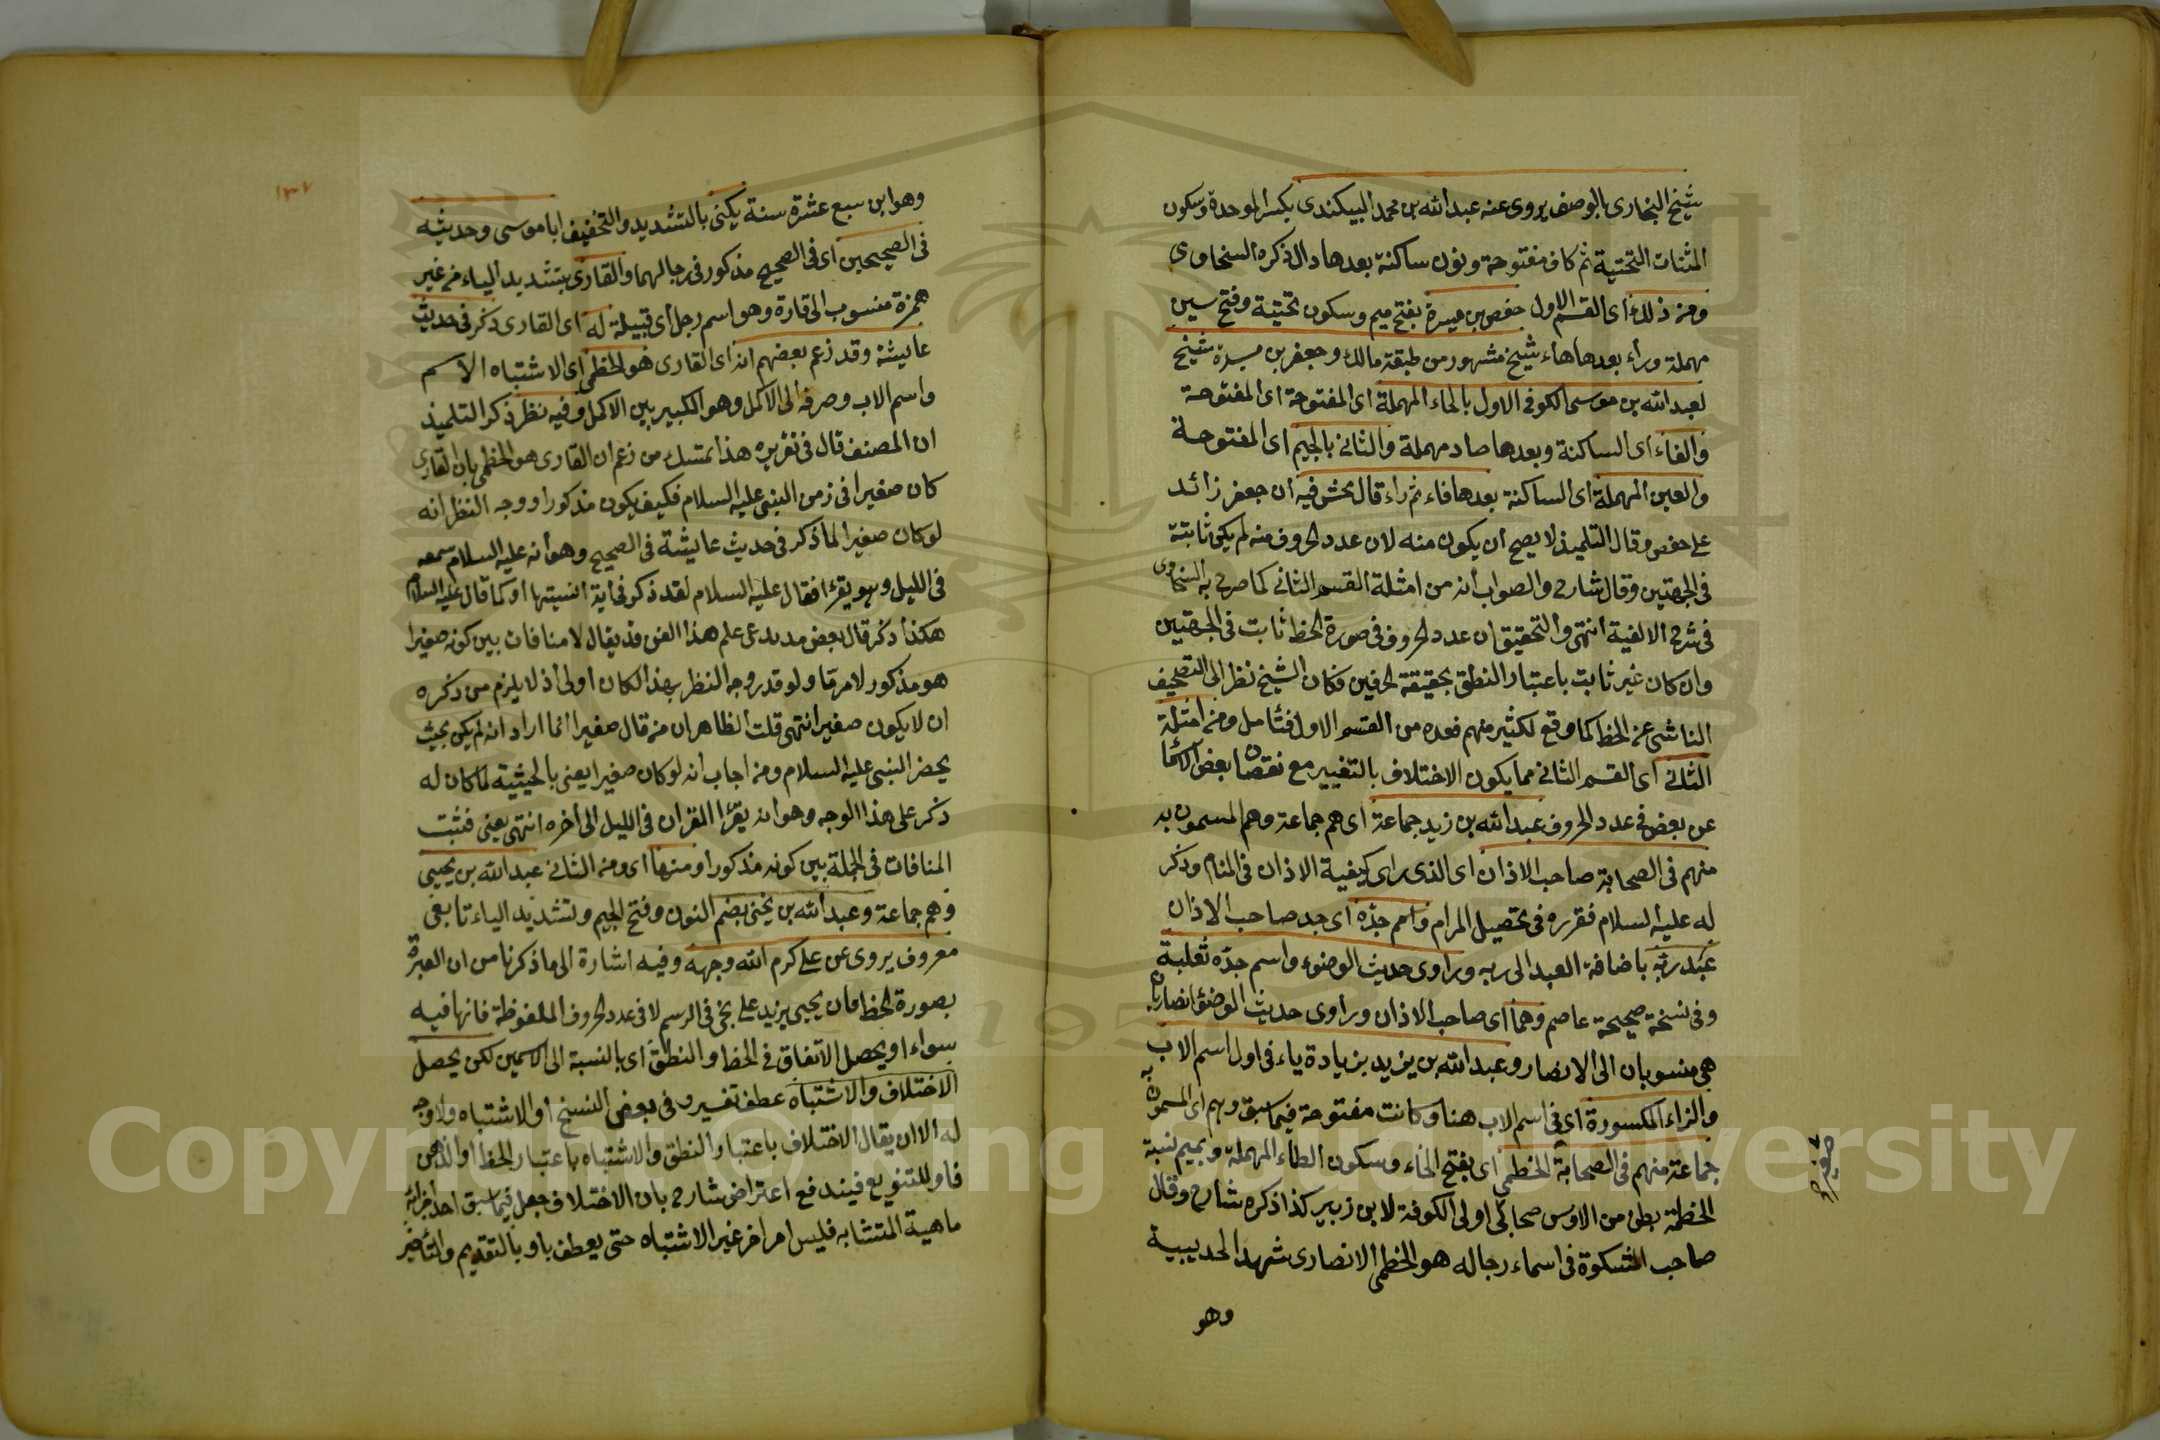 شيخ البخارى بالوصف يروى عنه عبد الله بن محمد البيكندى بكسر الموحدة وسكون
المثنات التحتية ثم كاف مفتوحة ونون ساكنة بعدها دال ذكره السخاوى
ومن ذلك اى القسم الاول حفص بن ميسرة بفتح ميم وسكون تحتية وفتح سين
مهملة وراء بعدها هاء شيخ مشهور من طبقة مالك وجعفر بن ميسرة شيخ
لعبد الله بن موسى الكوفى الاول بالحاء المهملة اى المفتوحة اى المفتوحة
والفاء اى الساكنة وبعدها صاد مهملة والثانى بالجيم اى المفتوحة
والعين المهملة اى الساكنة بعدها فاء ثم راء قال محش فيه ان جعفر زائد
على حفص وقال التلميذ لا يصح ان يكون منه لان عدد الحروف منه لم يكن ثابتة
فى الجهتين وقال شارح والصواب انه من امثلة القسم الثانى كما صرح به السخاوى
فى شرح الالفية انتهى والتحقيق ان عدد الحروف فى صورة الخط ثابت فى الجهتين
وان كان غير ثابت باعتبار النطق بحقيقة الحرفين فكان الشيخ نظر الى التصحيف
الناشى عن الخط كما وقع لكثير منهم فعده من القسم الاول فتأمل ومن امثلة
الثانى اى القسم الثانى مما يكون الاختلاف بالتغيير مع نقصان بعض الاسماء
عن بعض فى عدد الحروف عبد الله بن زيد جماعة اى هم جماعة وهم المسمون به
منهم فى الصحابة صاحب الاذان اى الذى راى كيفية الاذان فى المنام وذكر
له عليه السلام فقرره فى تحصيل المرام واسم جده اى جد صاحب الاذان
عبد ربه باضافة العبد الى ربه وراوى حديث الوضوء واسم جده ثعلبة
وفى نسخة صحيحة عاصم وهما اى صاحب الاذان وراوى حديث الوضوء انصاريان
هى منسوبان الى الانصار وعبد الله بن يزيد بزيادة ياء فى اول اسم الاب
والزاء المكسورة اى فى اسم الاب هنا وكانت مفتوحة فيما سبق وهم اى المسمون به
جماعة منهم فى الصحابة الخطمى اى بفتح الخاء وسكون الطاء المهملة وبميم نسبة
الخطمة بطن من الاوس صحابى اولى الكوفة لابن زبير كذا ذكره شارح وقال
صاحب المشكوة فى اسماء رجاله هو الخطمى الانصارى شهد الحديبية
وهو
وهو ابن سبع عشرة سنة يكنى بالتشديد والتخفيف ابا موسى وحديثه
فى الصحيحين اى فى الصحيح مذكور فى رجالهما والقارى بتشديد الياء من غير
همزة منسوب الى قارة وهو اسم رجل اى قبيلة له اى القارى ذكر فى حديث
عايشة وقد زعم بعضهم انه اى القارى هو الخطمى اى الاشتباه الاسم
واسم الاب وصرفه الى الاكمل وهو الكبير بين الاكمل وفيه نظر ذكر التلميذ
ان المصنف قال فى تقريره هذا تمسك من زعم ان القارى هو الخطمى بان القارى
كان صغيرا فى زمن النبى عليه السلام فكيف يكون مذكورا ووجه النظر انه
لو كان صغيرا لما ذكر فى حديث عايشة فى الصحيح وهو أنه عليه السلام سمعه
فى الليل وهو يقرء افقال عليه السلام لقد ذكرنى أية انسيتها أو كما قال عليه السلام
هكذا ذكر قال بعض مديدعى علم هذا الفن قد يقال لا منافات بين كونه صغيرا
هو مذكور لامرما ولو قدر وجه النظر بهذا لكان اولى أذ لا يلزم من ذكره
ان لا يكون صغيرا انتهى قلت الظاهر ان من قال صغيرا انما اراد انه لم يكن بحيث
يحضر النبى عليه السلام ومن اجاب انه لو كان صغيرا يعنى بالحيثية لما كان له
ذكر على هذا الوجه وهو انه يقرا القران فى الليل الى أخره انتهى يعنى فثبت
المنافات فى الجملة بين كونه مذكورا ومنها اى ومن الثانى عبد الله بن يحيى
وهم جماعة وعبد الله بن نجى بضم النون وفتح الجيم وتشديد الياء تابعى
معروف يروى عن على كرم الله وجهه وفيه اشارة الى ما ذكرنا من ان العبرة
بصورة الخط فان يحيى يزيد على نجى فى الرسم لا فى عدد الحروف الملفوظة فانها فيه
سواء او يحصل الاتفاق فى الخط والنطق اى بالنسبة الى الاسمين لكن يحصل
الاختلاف والاشتباه عطف تفسير وفى بعض النسخ أو الاشتباه ولا وجه
له الا ان يقال الاختلاف باعتبار النطق والاشتباه باعتبار الخط او الذهن
فاو للتنويع فيندفع اعتراض شارح بان الاختلاف جعل فيما سبق احد اجزاء
ماهية المتشابه فليس امر اخر غير الاشتباه حتى يعطف باو بالتقديم والتأخير
Copyright © King Saud University
1957